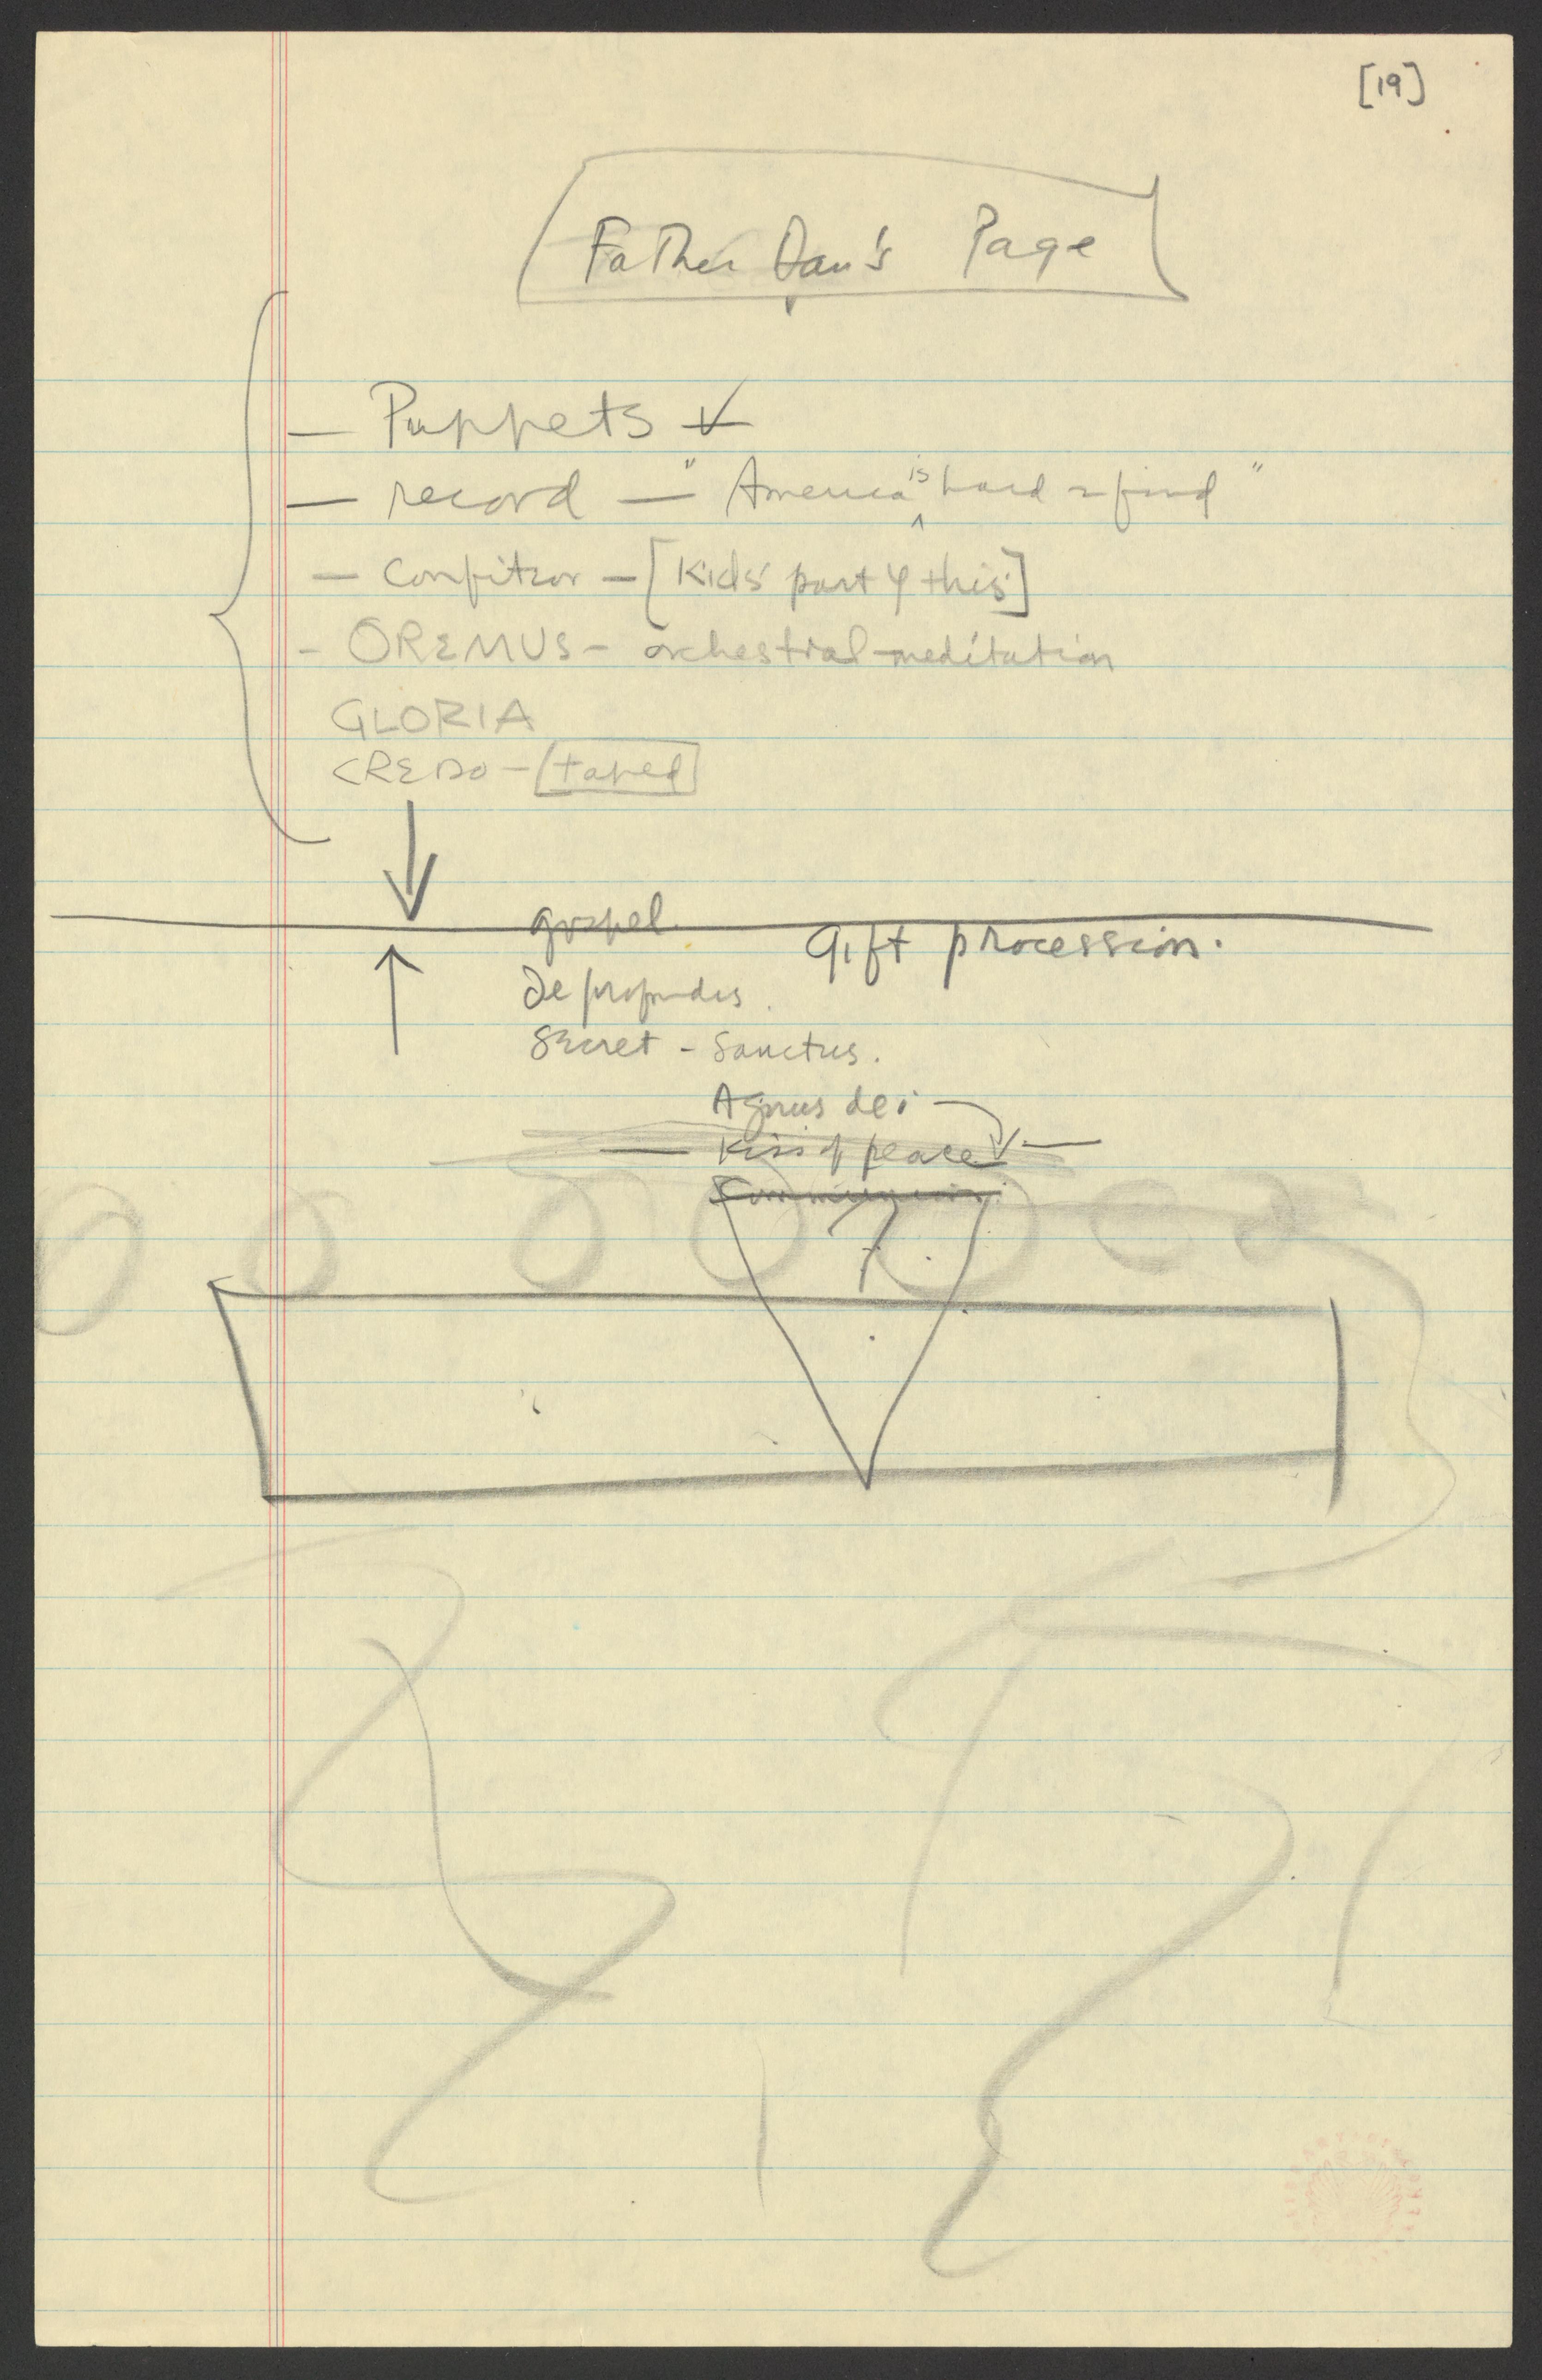 [19]
Father Dan's Page
— Puppets ✓
— record — "America is hard 2 find"
— Confiteor — [Kids' part of this]
- OREMUS - orchestral meditation
GLORIA
CREDO - taped
gospel.
gift procession.
De profundis.
Secret - Sanctus.
Agnus dei
— Kiss of peace —
Communion